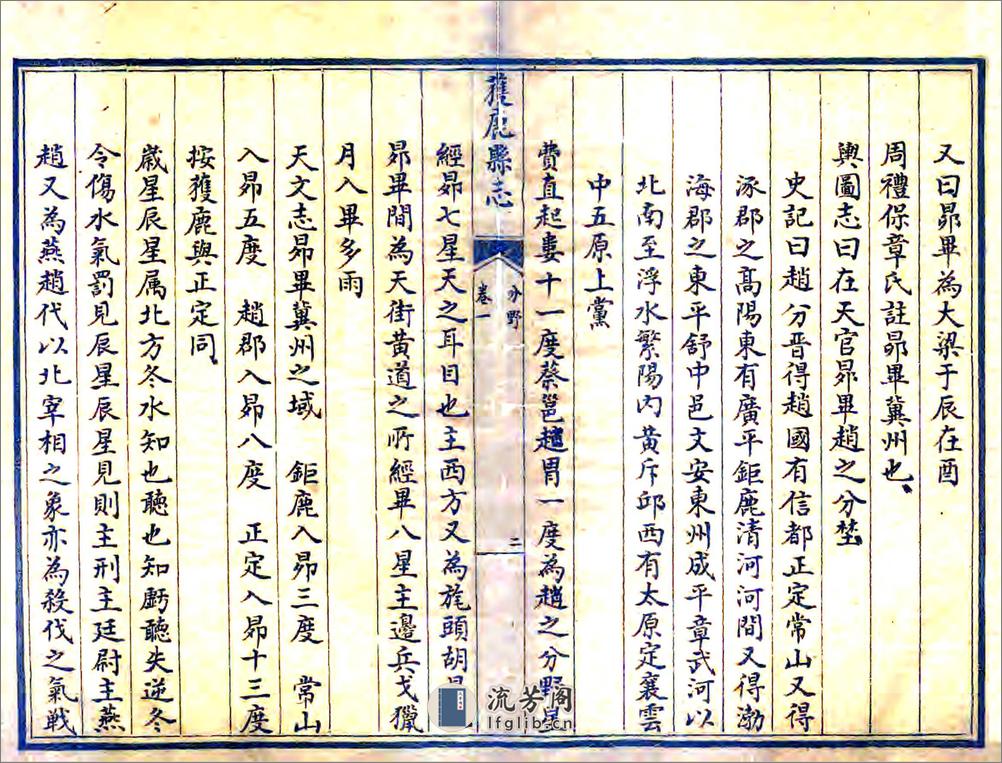 又曰昴畢為大梁于辰在酉
周禮保章氏註昴畢冀州也
輿圖志曰在天官昴畢趙之分埜
史記曰趙分晋得趙國有信都正定常山又得
涿郡之髙陽東有廣平鉅鹿清河河間又得渤
海郡之東平舒中邑文安東州成平章武河以
北南至浮水繁陽内黄斥邱西有太原定襄雲
中五原上黨
費直起婁十一度蔡邕趙胃一度為趙之分野
獲鹿縣志
分野
卷一
二
經昴七星天之耳目也主西方又為旄頭胡
昴畢間為天街黄道之所經畢八星主邊兵戈獵
月入畢多雨
天文志昴畢冀州之域 鉅鹿入昴三度 常山
入昴五度 趙郡入昴八度 正定入昴十三度
按獲鹿與正定同
嵗星辰星属北方冬水知也聽也知虧聽失逆冬
令傷水氣罰見辰星辰星見則主刑主廷尉主燕
趙又為燕趙代以北宰相之象亦為殺伐之氣戦
流芳阁
lfglib.cn